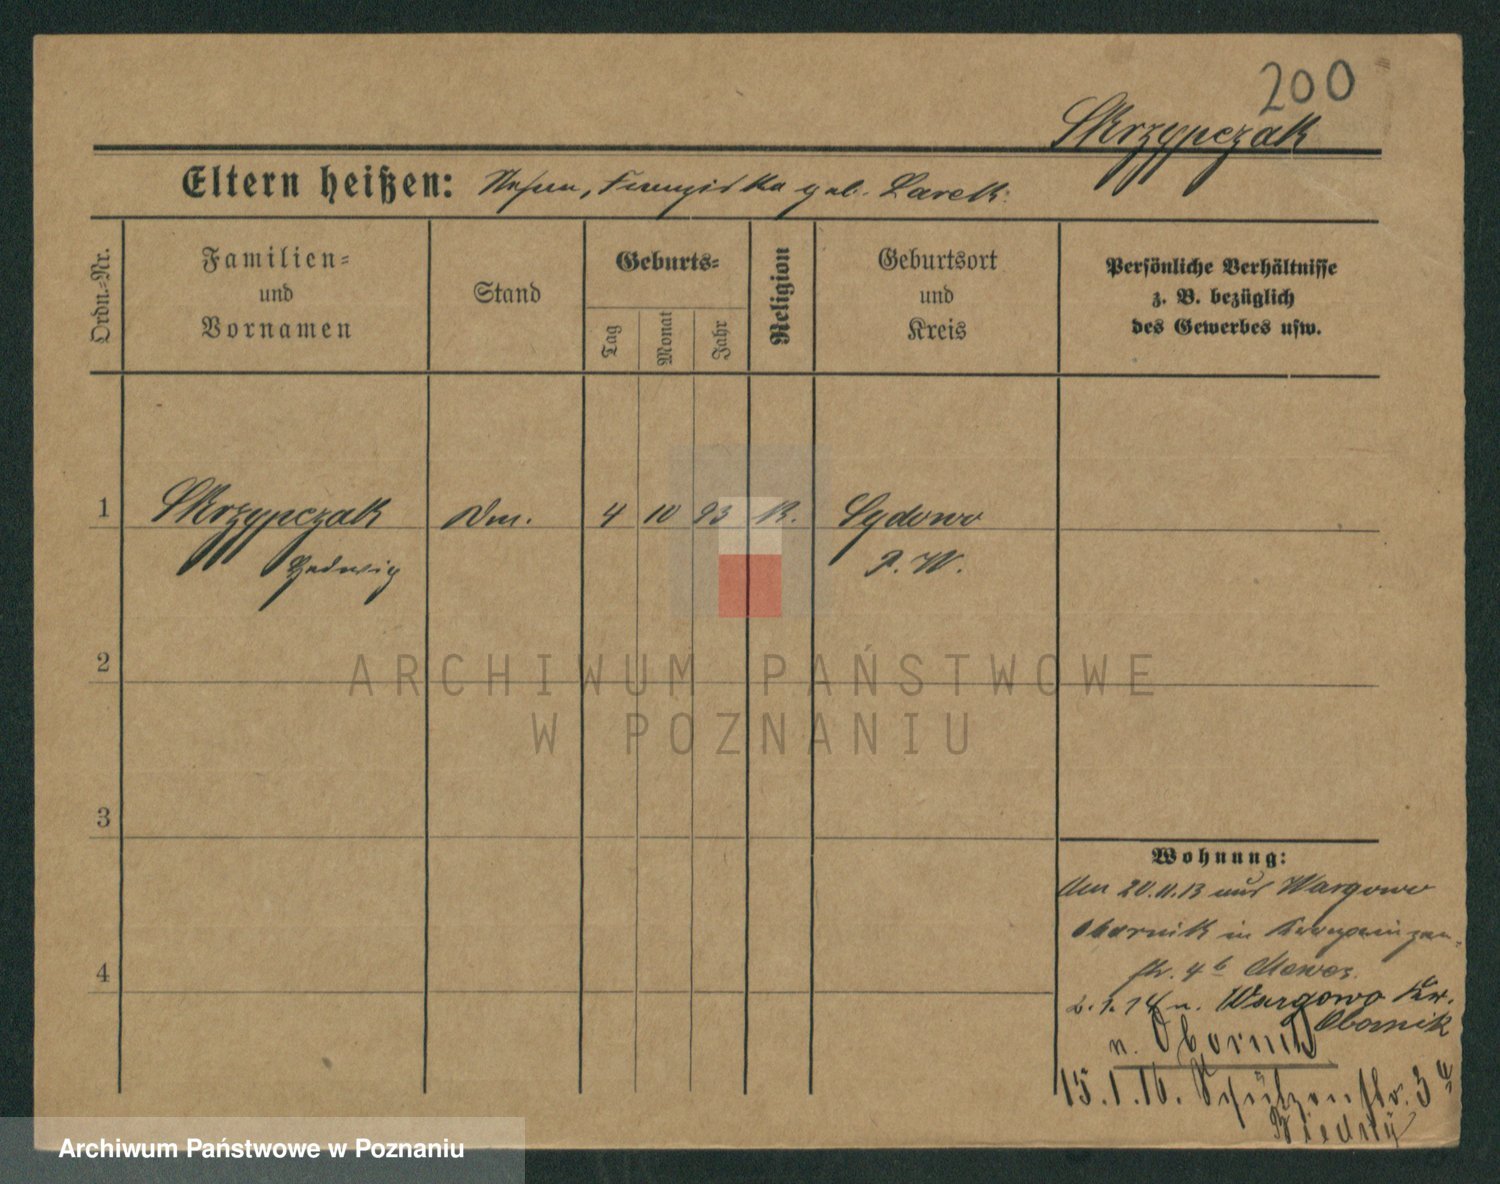 200
Skrzypczak
Eltern heißen: Franziska geb.
Ordn.-Nr.
Familien-
und
Vornamen
Stand
Geburts-
Tag
Monat
Jahr
Religion
Geburtsort
und
Kreis
Persönliche Verhältnisse
z. B. bezüglich
des Gewerbes usw.
1 Skrzypczak 4 10 93 K.
Hedwig P. W.
2
ARCHIWUM PAŃSTWOWE
W POZNANIU
3
Wohnung:
20.11.13 aus Wargowo
Obornik in
str. 4 b
4
2.1.14 n. Wargowo Kr.
Obornik
n. Obornik
15.1.16. Schützenstr. 3 a
Archiwum Państwowe w Poznaniu